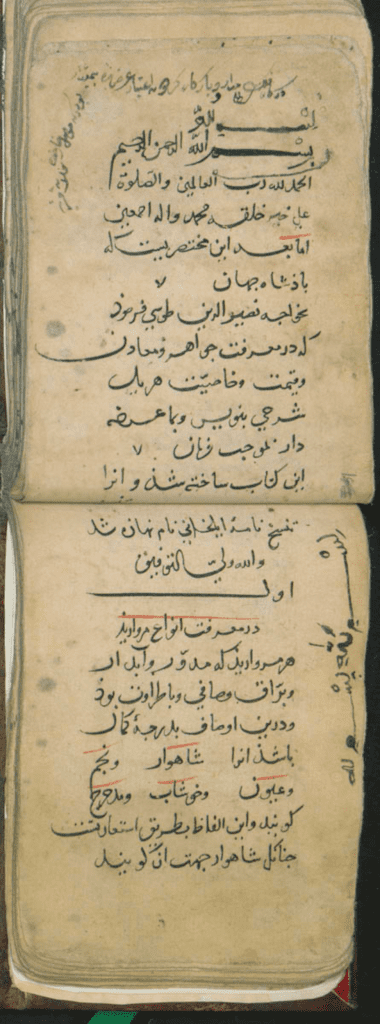 بسم الله
بسم الله الرحمن الرحیم
الحمد لله رب العالمین والصلوة
علی خیر خلقه محمد واله اجمعین
اما بعد این مختصریست که
باذشاه جهان
بخواجه نصیر الدین طوسی فرمود
که در معرفت جواهر و معادن
وقیمت وخاصیت هریک
شرحی بنویس وبما عرضه
دار بموجب فرمان
این کتاب ساخته شذ و انرا
تنسخ نامهٔ ایلخانی نام نهاده شد
والله ولی التوفیق
اول
در معرفت انواع مروارید
هر مرواریذ که مدوّر و آبدار
وبرّاق وصافی وباطراوت بوذ
ودرین اوصاف بدرجهٔ کمال
باشذ انرا شاهوار ونجم
وعیون وخوشاب ومدحرج
کویند واین الفاظ بطریق استعارتست
جنانکه شاهوار جهت آن کویند